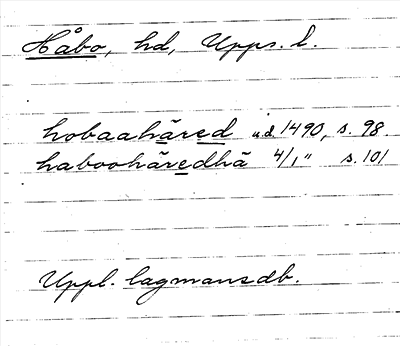 Håbo, hd, Upps. l.
hobaahäred u.d. 1490, s. 98.
haboohäredhä 4/1 " s. 101
Uppl. lagmansdb.